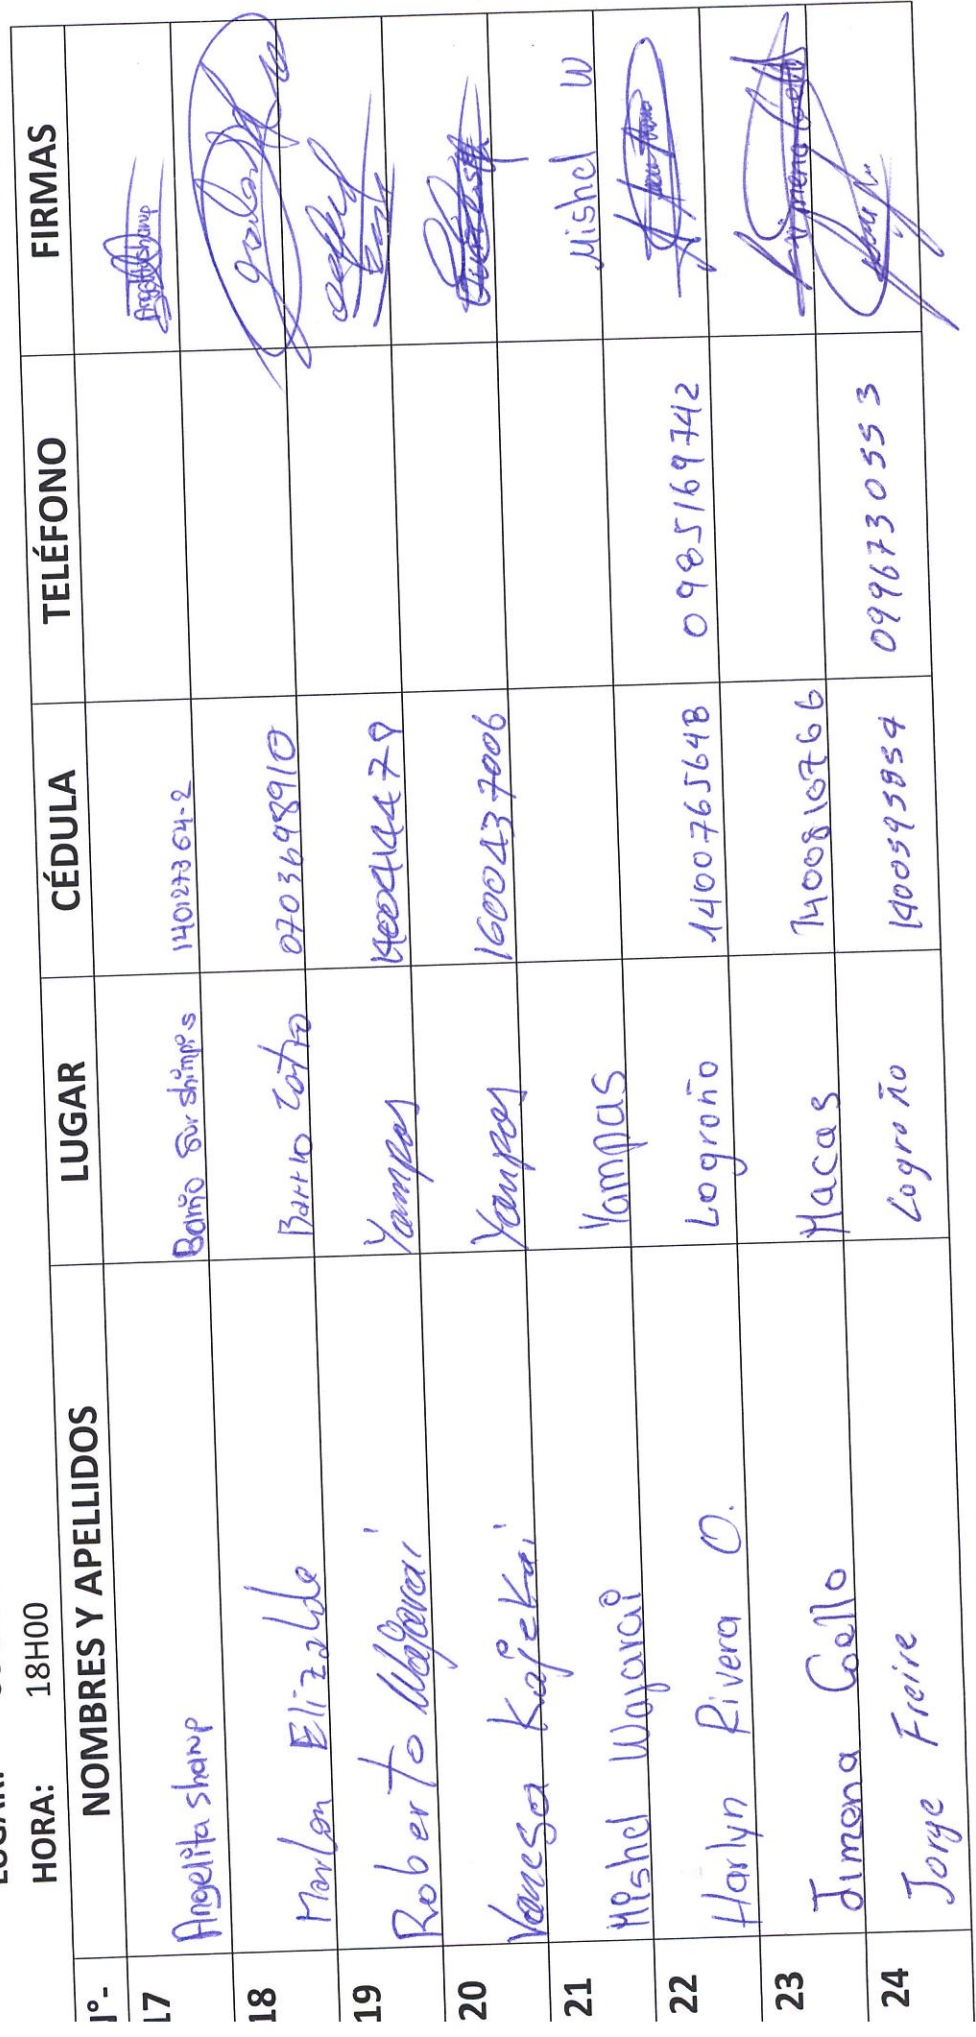 HORA: 18H00
N°- NOMBRES Y APELLIDOS LUGAR CÉDULA TELÉFONO FIRMAS
17 Angelita Shanp Barrio Sur Shimpis 140127364-2
18 Marlon Elizalde Barrio 0703698910
19 Roberto Wajarai Yampas
20 Vanesa Kajekai Yampas 1600437006
21 Mishel Wajarai Yampas Mishel W
22 Harlyn Rivera O. Logroño 1400765648 0985169742
23 Jimena Coello Macas 1400810766 Jimena Coello
24 Jorge Freire Logroño 1400595954 0996730553